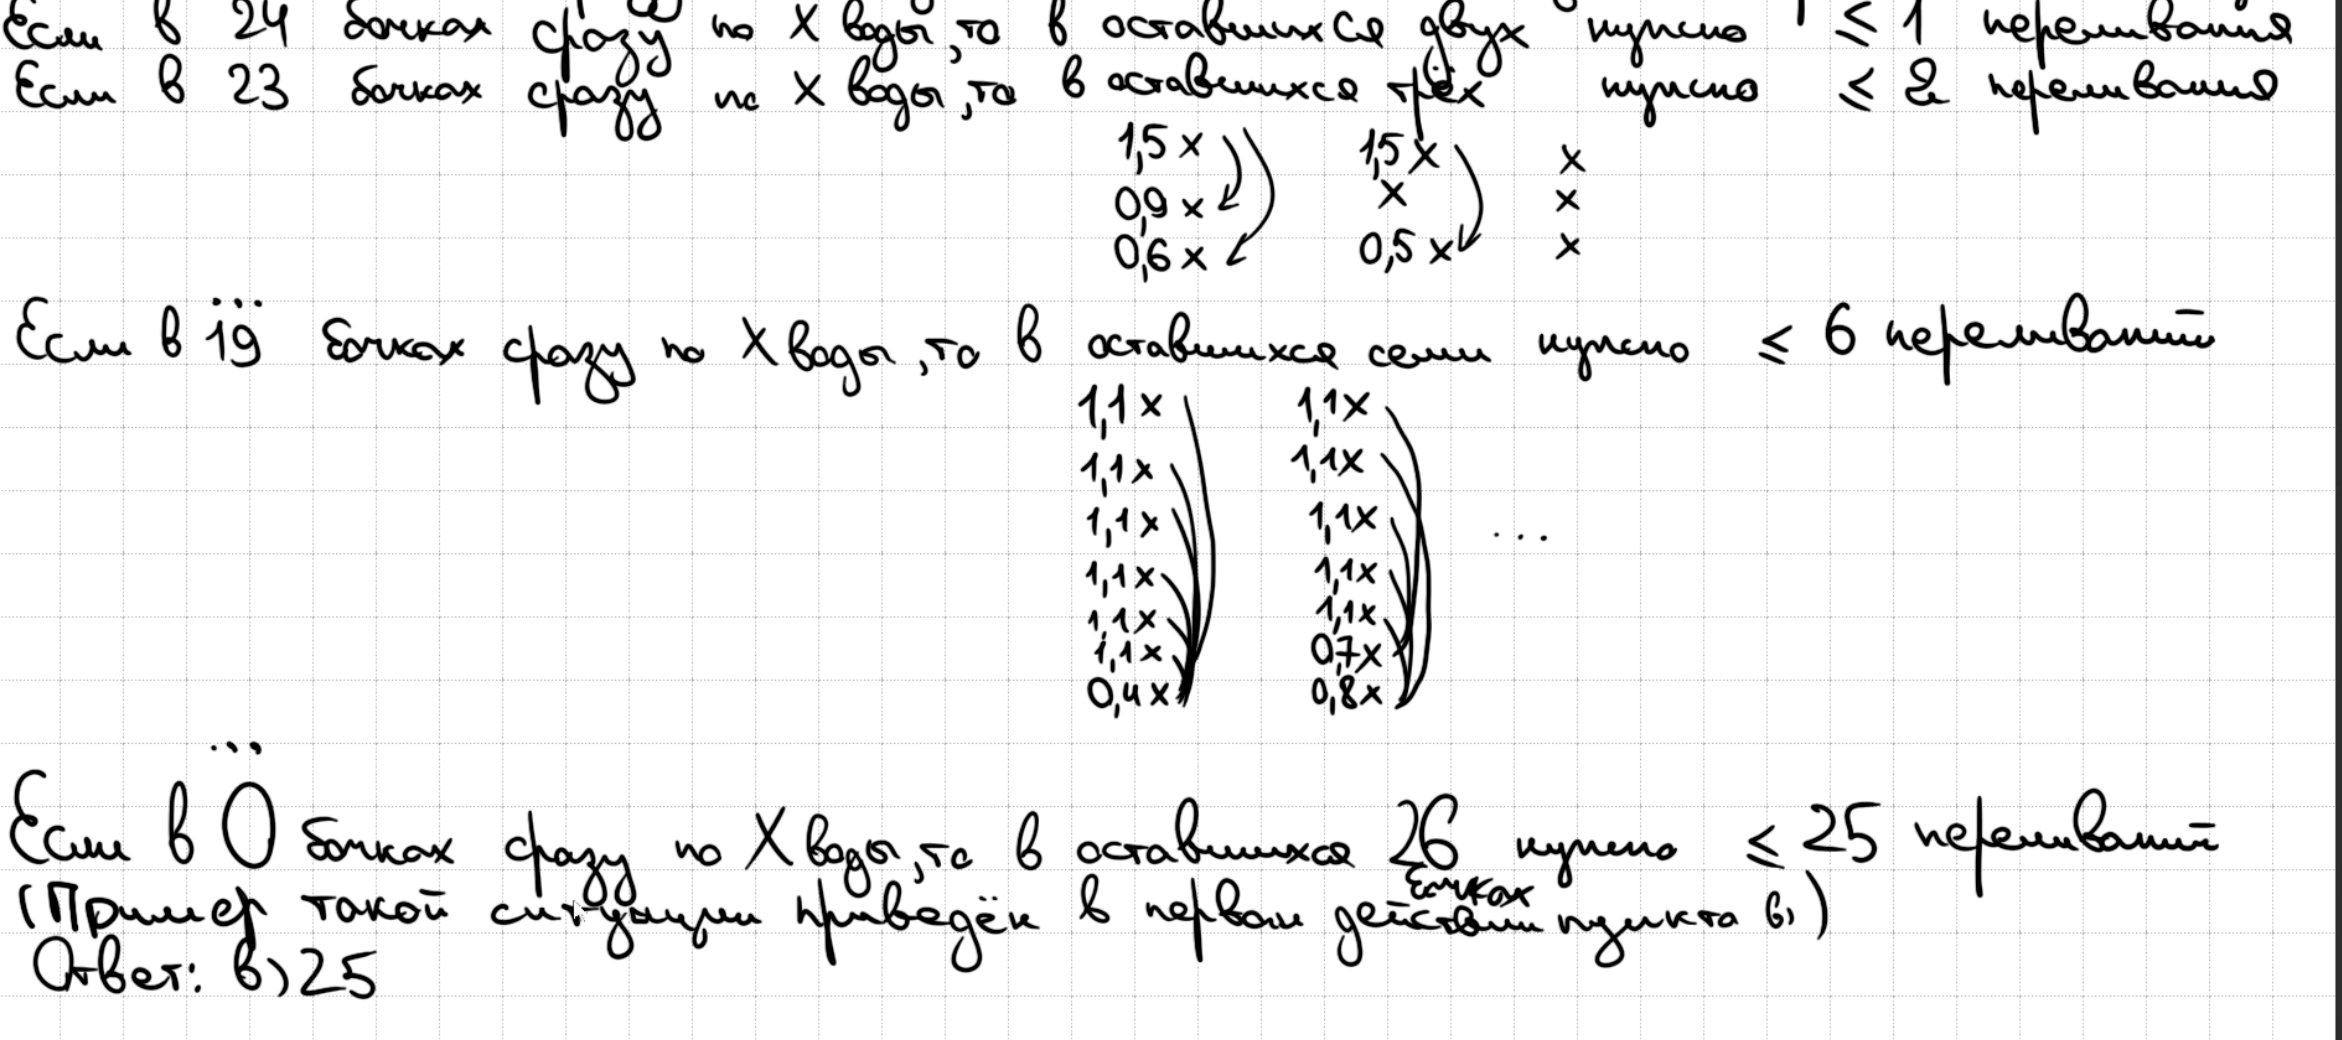 Если в 24 бочках сразу по X воды, то в оставшихся двух нужно ≤ 1 переливания
Если в 23 бочках сразу по X воды, то в оставшихся трёх нужно ≤ 2 переливания
1,5x 1,5x x
0,9x x x
0,6x 0,5x x
...
Если в 19 бочках сразу по X воды, то в оставшихся семи нужно ≤ 6 переливаний
1,1x 1,1x
1,1x 1,1x
1,1x 1,1x ...
1,1x 1,1x
1,1x 1,1x
1,1x 0,7x
0,4x 0,8x
...
Если в 0 бочках сразу по X воды, то в оставшихся 26 нужно ≤ 25 переливаний
бочках
(Пример такой ситуации приведён в первом действии пункта в))
Ответ: в) 25